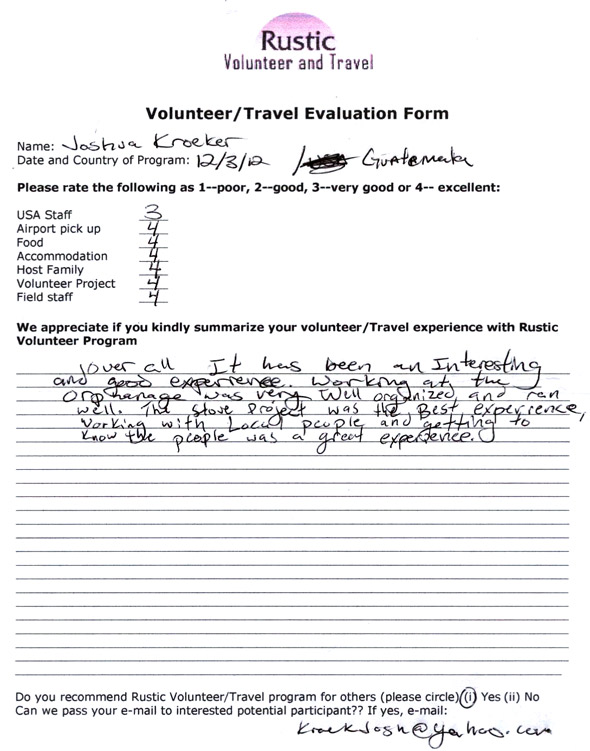 Rustic
Volunteer and Travel
Volunteer/Travel Evaluation Form
Name: Joshua Kroeker
Date and Country of Program: 12/3/12 Guatemala
Please rate the following as 1--poor, 2--good, 3--very good or 4-- excellent:
USA Staff 3
Airport pick up 4
Food 4
Accommodation 4
Host Family 4
Volunteer Project 4
Field staff 4
We appreciate if you kindly summarize your volunteer/Travel experience with Rustic
Volunteer Program
over all It has been an Interesting
and good experience. Working at the
orphanage was very Well organized and ran
well. The stove project was the Best experience,
Working with Local people and getting to
Know the people was a great experience.
Do you recommend Rustic Volunteer/Travel program for others (please circle) (i) Yes (ii) No
Can we pass your e-mail to interested potential participant?? If yes, e-mail:
KroekJosh@yahoo.com